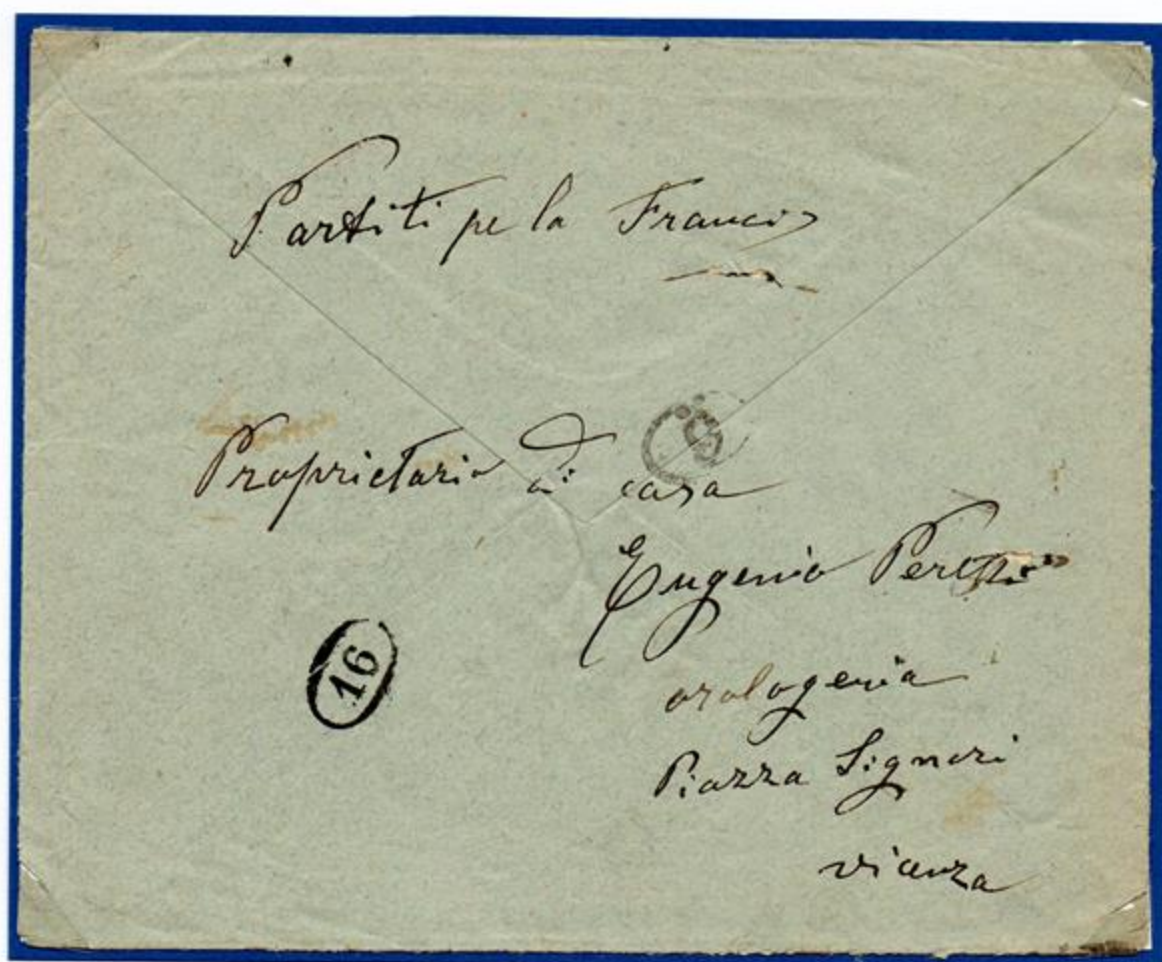 Partiti pe la Francia
Proprietario di casa
Eugenio
orologeria
16
Piazza Signori
Vicenza